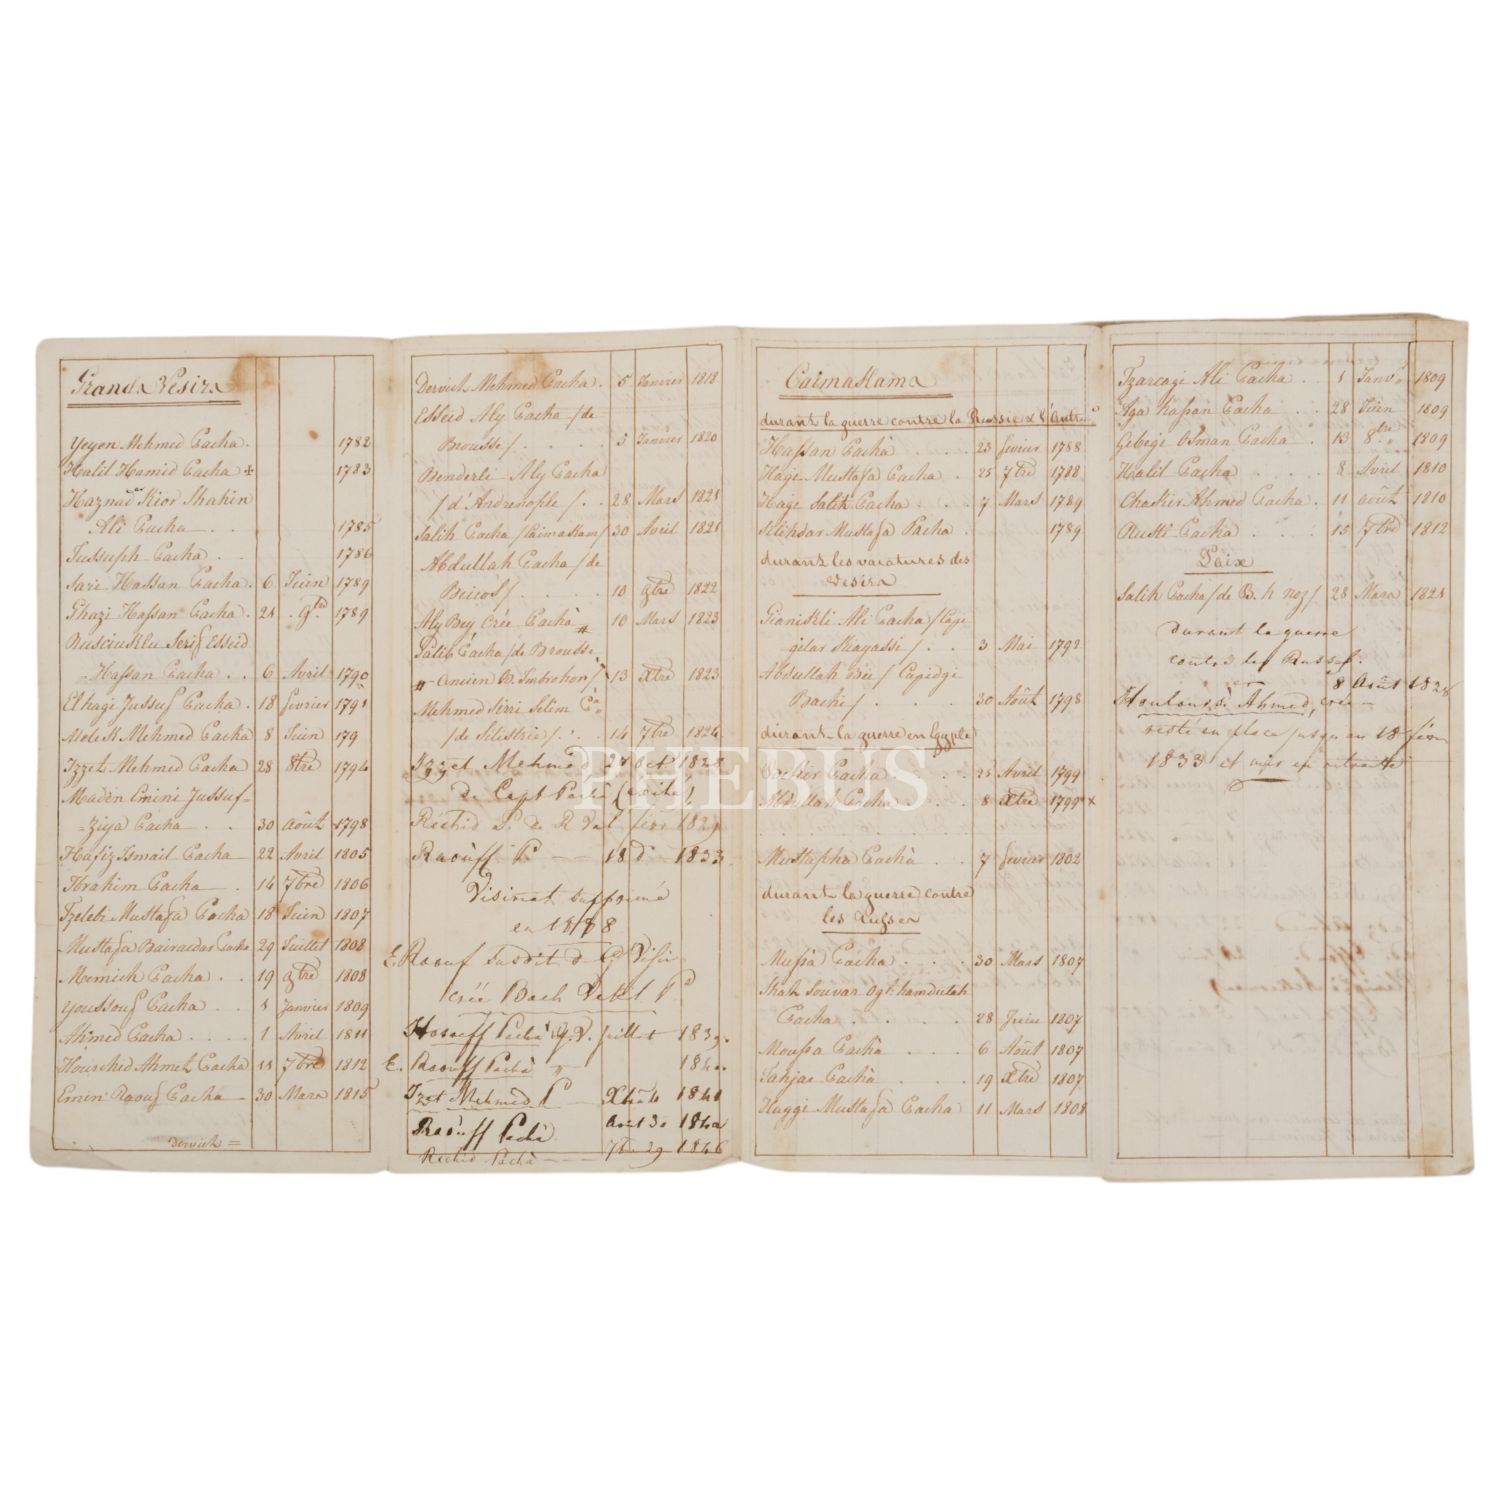 Grands Vesirs
Yeyen Mehmed Pacha . 1782
Halil Hamid Pacha + 1783
Haznad Kior Shahin
Ali Pacha . . 1785
Jussuph Pacha . . 1786
Sari Hassan Pacha . 6 Juin 1789
Ghazi Hassan Pacha . 21 . 9bre 1789
Rusciuklu Serif Esseid
= Hassan Pacha . . 6 Avril 1790
El hagi Jussuf Pacha . 18 fevrier 1791
Melek Mehmed Pacha 8 Juin 179
Izzet Mehmed Pacha 28 8tre 1794
Maden Emini Jussuf =
= Ziya Pacha . . 30 Août 1798
Hafiz Ismail Pacha 22 Avril 1805
Ibrahim Pacha . 14 7bre 1806
Tzelebi Mustafa Pacha 18 Juin 1807
Mustafa Bairacdar Pacha 29 Juillet 1808
Memich Pacha . . 19 9tre 1808
Youssouf Pacha . . 1 Janvier 1809
Ahmed Pacha . . . . 1 Avril 1811
Hourschid Ahmet Pacha 11 7bre 1812
Emin Raouf Pacha 30 Mars 1815
Dervich =
Dervich Mehmed Pacha . 5 Janvier 1818
Esseid Aly Pacha / de
Brousse / . . . . 5 Janvier 1820
Benderli Aly Pacha
/ d'Andrenople / . . 28 Mars 1821
Salih Pacha / Caimakam / 30 Avril 1821
Abdullah Pacha / de
/ . . . . 10 9tre 1822
Aly Bey Crée Pacha # 10 Mars 1823
Galib Pacha / de Brousse
# ancien G. Imbrohor / 13 Xtre 1823
Mehmed Sirri Selim Pa =
/ de Silistrie / . . 14 7bre 1824
Izzet Mehmed 24 Oct 1828
De Capt Pacha (exilé)
Réchid P. de R. Val fevr 1829
Raouff P 18 do 1833
Visirat supprimé
en 1838
E. Raouf susdit d. G Visir
créé Bach Vekil Po
Hosreff Pacha G.V. juillet 1839.
E. Raouff Pacha 1840
Izet Mehmed P 1841
Raouff Pacha Août 30 1842
Réchid Pacha 1846
Caimakams
durant la guerre contre la Russie & l'Autre
Hassan Pacha . . . 23 fevrier 1788
Hagi Mustafa Pacha . 25 7tre 1788
Hagi Salik Pacha . . . 7 Mars 1789
Silihdar Mustafa Pacha . 1789
durant les vacatures des
Vesirs
Gianikli Ali Pacha / Capi
gilar Kiayassi / . . 3 Mai 1792
Abdullah Bei / Capidgi
Bachi / . . . . 30 Août 1798
durant la guerre en Egypte
Beckir Pacha . . . 21 Avril 1799
Abdullah Pacha . . . 8 Xtre 1799 x
Mustapha Pacha . . 7 fevrier 1802
durant la guerre contre
les Russes
Mussa Pacha . . . 30 Mars 1807
Shah Souvar Ogl. hamdulah
Pacha . . . . 28 Juin 1807
Moussa Pacha . . . 6 Août 1807
Janjar Pacha . . . . 19 Xtre 1807
Haggi Mustafa Pacha 11 Mars 1808
Tzarcagi Ali Pacha . . 1 Janvr 1809
Aga Hassan Pacha . . 28 Juin 1809
Gebegi Osman Pacha . 13 8bre 1809
Halil Pacha . . . . 8 Avril 1810
Chakir Ahmed Pacha . 11 août 1810
Rusti Pacha . . . 15 7tre 1812
Paix
Salih Pacha / de B. h noz / 28 Mars 1821
Durant la guerre
contre les Russes.
8 Août 1828
Houloussi Ahmed, créé
resté en place jusqu'au 18 fevr
1833 et mis en retraite
PHEBUS